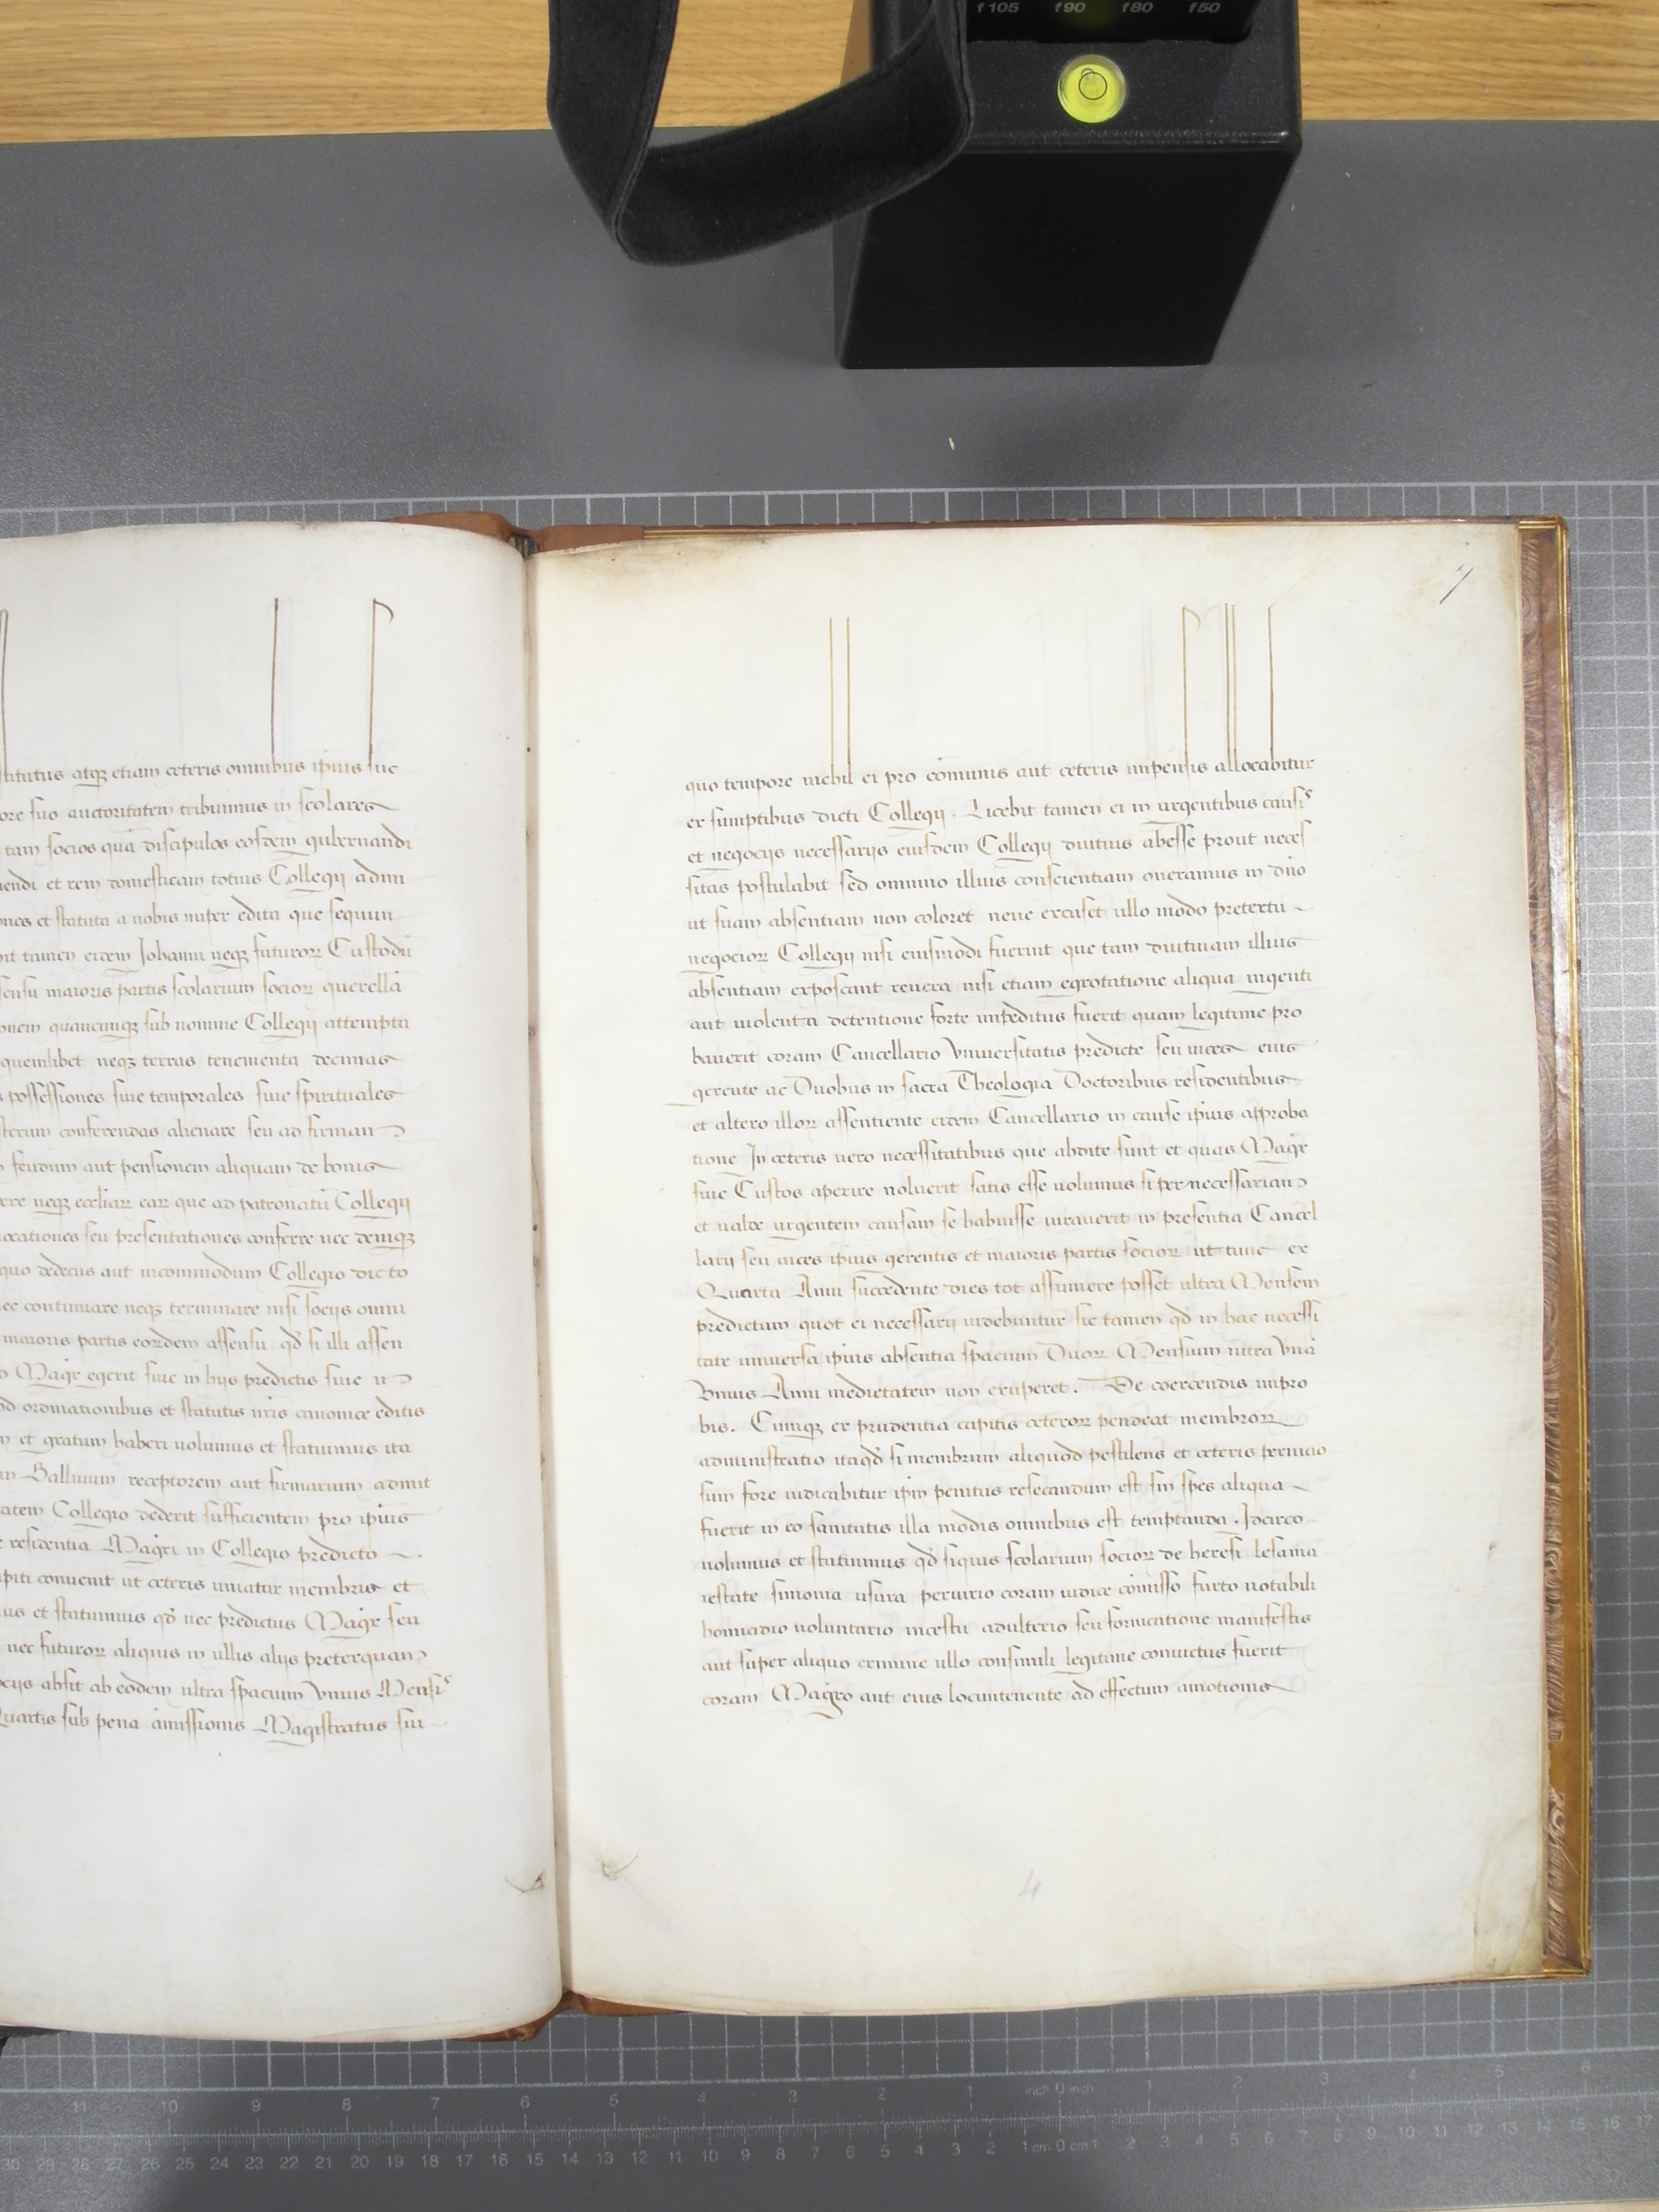 f105 f90 f80 f50
titutus atqꝫ etiam ceteris omnibus ip̄ius suc
ore suo auctoritatem tribuimus in scolares
tam socios quā discipulos eosdem gubernandi
endi et rem domesticam totius Collegij admi
ones et statuta a nobis nuper edita que sequun
it tamen eidem Johanni neqꝫ futuroꝝ Custodū
sensu maioris partis scolarium socioꝝ querellā
onem quamcumqꝫ sub nomine Collegij attempta
quemlibet neqꝫ terras tenementa decimas
s possessiones siue temporales siue spirituales
sterum conferendas alienare seu ad firman
feudum aut pensionem aliquam de bonis
ere neqꝫ ecc̄liaꝝ eaꝝ que ad patronatū Collegij
ocationes seu presentationes conferre nec deniqꝫ
quo dedecus aut incommodum Collegio dicto
ec continuare neqꝫ terminare nisi socijs omni
maioris partis eoꝝdem assensu qđ si illi assen
o Magr̄ egerit siue in hijs predictis siue in
od ordinationibus et statutis nr̄is canonice editis
m et gratum haberi uolumus et statuimus ita
m Balliuum receptorem aut firmarium admit
tatem Collegio dederit sufficientem pro ip̄ius
e residentia Magr̄i in Collegio predicto
apiti conuenit ut ceteris uniatur membris et
us et statuimus qđ nec predictus Magr̄ seu
nec futuroꝝ aliquis in ullis alijs preterquam
ocijs absit ab eodem ultra spacium Vnius Mensis
Quartis sub pena amissionis Magistratus sui
7
quo tempore nichil ei pro cōmunis aut ceteris inpensis allocabitur
ex sumptibus dicti Collegij . Licebit tamen ei in urgentibus causis
et negocijs necessarijs eiusdem Collegij diutius abesse prout neces
sitas postulabit sed omnino illius conscientiam oneramus in dn̄o
ut suam absentiam non coloret neue excuset ullo modo pretextu
negocioꝝ Collegij nisi eiusmodi fuerint que tam diutinam illius
absentiam exposcant reuera nisi etiam egrotatione aliqua ingenti
aut uiolenta detentione forte impeditus fuerit quam legitime pro
bauerit coram Cancellario Vniuersitatis predicte seu uices eius
gerente ac Duobus in sacra Theologia Doctoribus residentibus
et altero illoꝝ assentiente eidem Cancellario in cause ip̄ius approba
tione In ceteris uero necessitatibus que abdite sunt et quas Magr̄
siue Custos aperire noluerit satis esse uolumus si per necessariam
et ualde urgentem causam se habuisse iurauerit in presentia Cancel
larij seu uices ip̄ius gerentis et maioris partis socioꝝ ut tunc ex
Quarta Anni succedente dies tot assumere posset ultra Mensem
predictum quot ei necessarij uidebuntur sic tamen qđ in hac necessi
tate uniuersa ip̄ius absentia spacium Duoꝝ Mensium intra Vnā
Vnius Anni medietatem non exuperet . De coercendis inpro
bis. Cumqꝫ ex prudentia capitis ceteroꝝ pendeat membroꝝ
administratio itaqđ si membrum aliquod pestilens et ceteris pernicio
sum fore iudicabitur ip̄m penitus resecandum est sin spes aliqua
fuerit in eo sanitatis illa modis omnibus est temptanda . Idcirco
uolumus et statuimus qđ siquis scolarium socioꝝ de heresi lesama
iestate simonia usura periurio coram iudice cōmisso furto notabili
homicidio uoluntario incestu adulterio seu fornicatione manifestis
aut super aliquo crimine ullo consimili legitime conuictus fuerit
coram Magr̄o aut eius locumtenente ad effectum amotionis
4
11 10 9 8 7 6 5 4 3 2 1 inch 0 inch 1 2 3 4 5 6
30 29 28 27 26 25 24 23 22 21 20 19 18 17 16 15 14 13 12 11 10 9 8 7 6 5 4 3 2 1 cm 0 cm 1 2 3 4 5 6 7 8 9 10 11 12 13 14 15 16 17